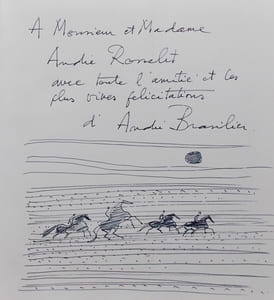 A Monsieur et Madame
André Rosselet
avec toute l'amitié et les
plus vives felicitations
d' André Brasilier